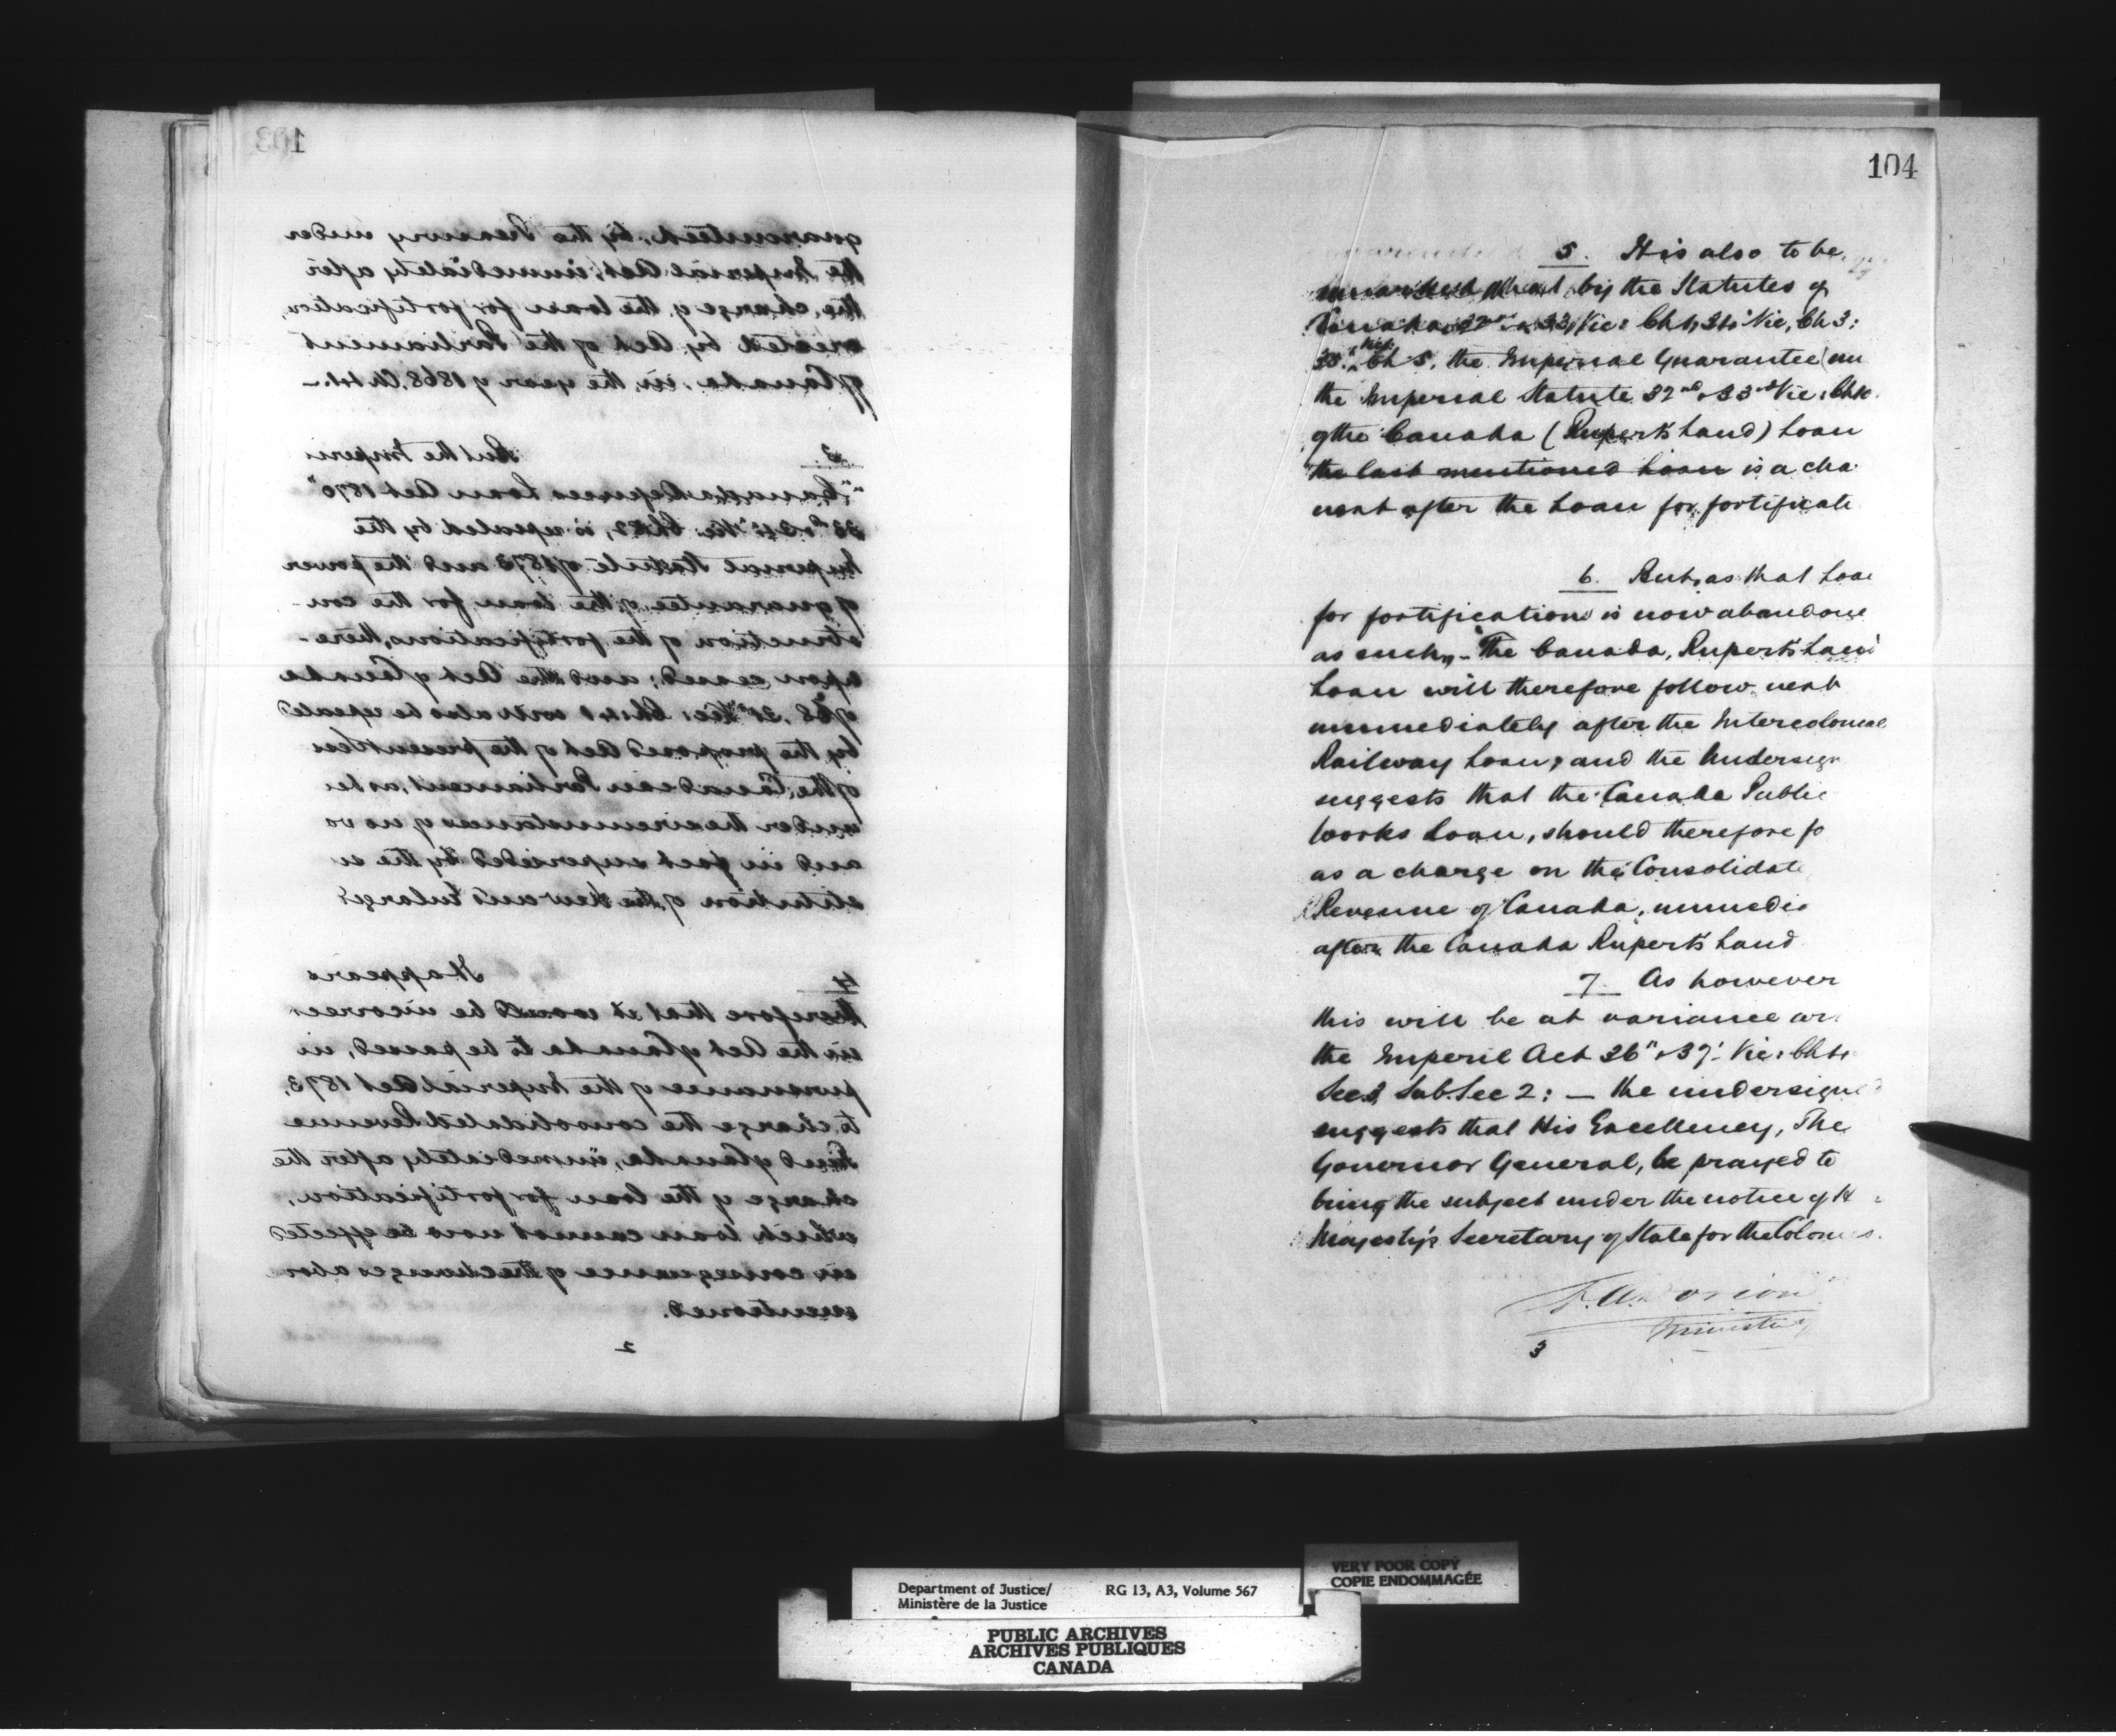 103
guaranteed, by the Treasury under
the Imperial Act, immediately after
the charge of the loan for fortification,
created by Act of the Parliament
of Canada, in the year of 1868. Ch 41.—
3. But the Imperi
"Canada Defences Loan Act 1870"
Vic: Ch 82, is repealed by the
Imperial Statute of 1873 and the power
of guarantee of the loan for the con-
struction of the fortifications, there-
upon ceased; and the Act of Canada
of 68. 31st Vic: Ch: 41 will also be repealed
by the proposed Act of the present Sess
of the Canadian Parliament, as be
under the circumstances of no va
and in fact superseded by the
stitution of the New and Enlarged
4. It appears
therefore that it would be incorrect
in the Act of Canada to be passed, in
pursuance of the Imperial Act 1873,
to charge the consolidated Revenue
Fund of Canada, immediately after the
charge of the loan for fortification,
which loan cannot now be effected
in consequence of the changes abov
mentioned.
2
104
5. It is also to be
that by the Statutes of
Canada 32nd & 33 Vic: Ch 1, 34 Vic, Ch 3:
35th Vic. Ch 5, the Imperial Guarantee (un
the Imperial Statute 32nd & 33rd Vic: Ch 10.
of the Canada (Rupert's Land) Loan
the last mentioned Loan is a cha
next after the Loan for fortificati
6. But, as that Loan
for fortification is now abandone
as such,, - "The Canada, Rupert's Land
Loan will therefore follow next
immediately after the Intercolonial
Railway Loan; and the Undersign
suggests that the Canada Public
Works Loan, should therefore fo
as a charge on the Consolidate
Revenue of Canada, immedia
after the Canada Rupert's Land
7. As however
this will be at variance wi
the Imperil Act 36" & 37' Vic: Ch
Sec. 3 Sub. Sec 2: — the undersigned
suggests that His Excellency, The
Governor General, be prayed to
bring the subject under the notice of H
Majesty's Secretary of State for the Colonies.
A. A. Dorion
Minister of
3
Department of Justice/ RG 13, A3, Volume 567
Ministère de la Justice
VERY POOR COPY
COPIE ENDOMMAGÉE
PUBLIC ARCHIVES
ARCHIVES PUBLIQUES
CANADA